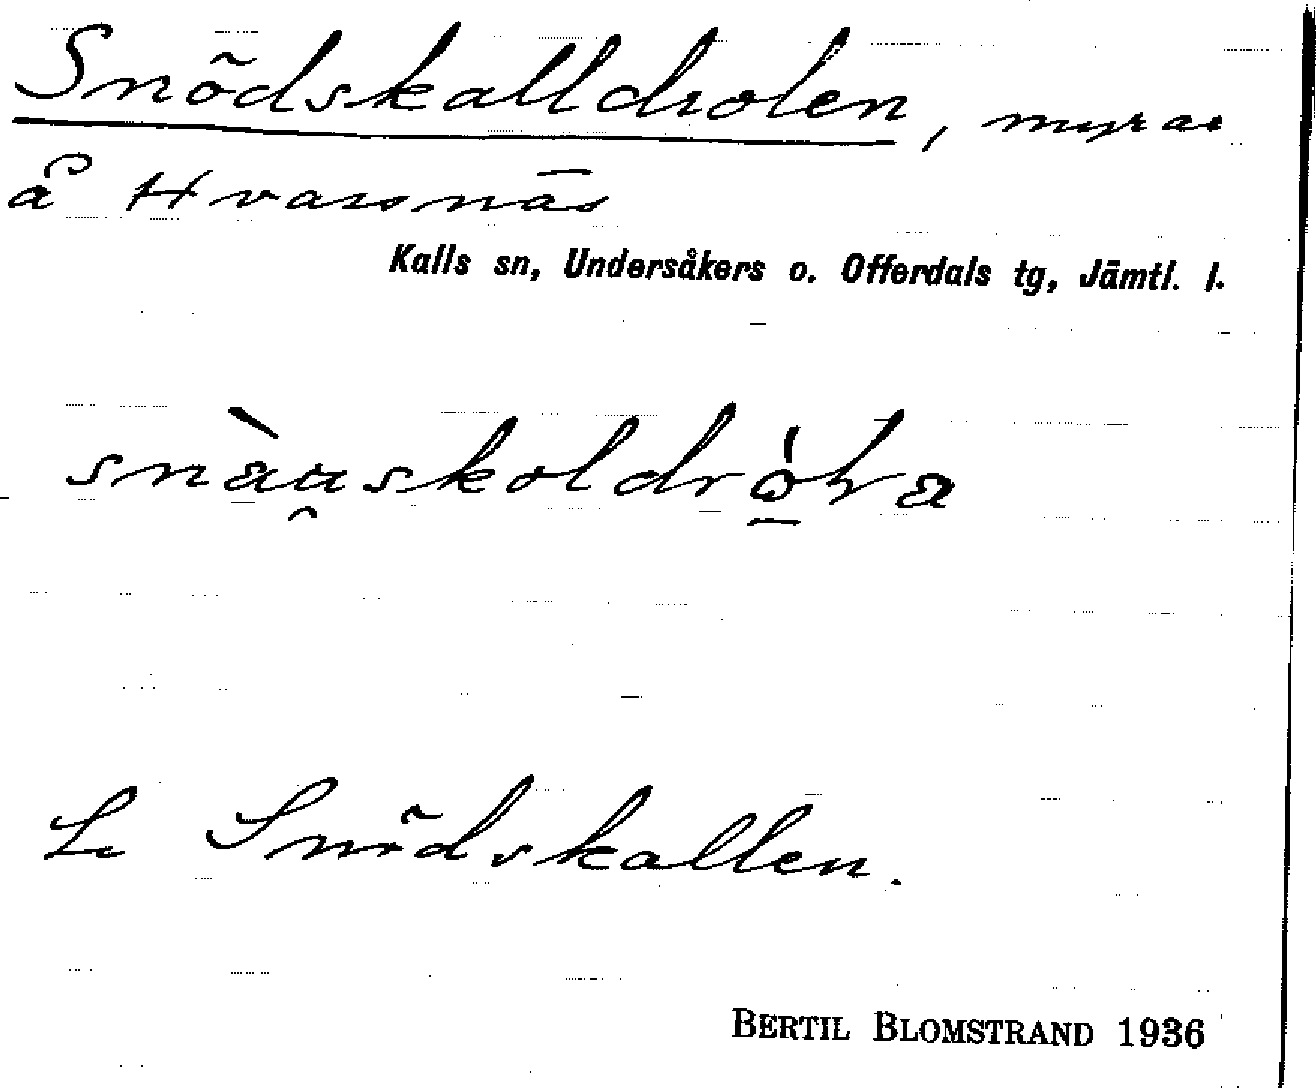 Snödskalldrolen, myrar
å Hvassnäs
Kalls sn, Undersåkers o. Offerdals tg, Jämtl. l.
Se Snödskallen.
BERTIL BLOMSTRAND 1936